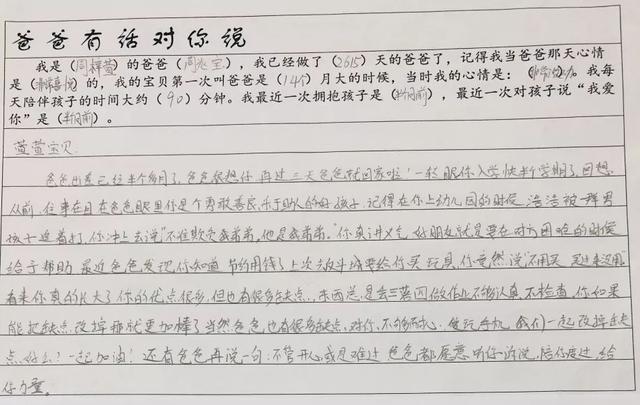 爸爸有话对你说
我是（周梓萱）的爸爸（周 宝），我已经做了（2615）天的爸爸了，记得我当爸爸那天心情
是（非常喜悦）的，我的宝贝第一次叫爸爸是（14个）月大的时候，当时我的心情是：（非常激动）。我每
天陪伴孩子的时间大约（90）分钟。我最近一次拥抱孩子是（半月前），最近一次对孩子说“我爱
你”是（半月前）。
萱萱宝贝
爸爸出差已经半个多月了，爸爸很想你，再过三天爸爸就回家啦！一转眼你入学快半学期了，回想
从前，往事在目在爸爸眼里你是个勇敢善良、乐于助人的好孩子，记得在你上幼儿园的时候 浩浩被一群男
孩子追着打，你冲上去说“不准欺负我弟弟，他是我弟弟。”你真讲义气 好朋友就是要在对方困难的时候
给予帮助 最近爸爸发现你知道节约用钱了上次去 城要给你买玩具，你竟然说“不用买
看来你真的长大了你的优点很多，但也有很多缺点，东西总是丢三落四做作业不够认真，不检查，你如果
能把缺点改掉那就更加棒了当然爸爸也有很多缺点，对你不够耐心，爱玩手机 我们一起改掉缺
点，好么？一起加油！还有爸爸再说一句：不管开心或是难过 爸爸都愿意听你诉说，陪你度过，给
你力量。